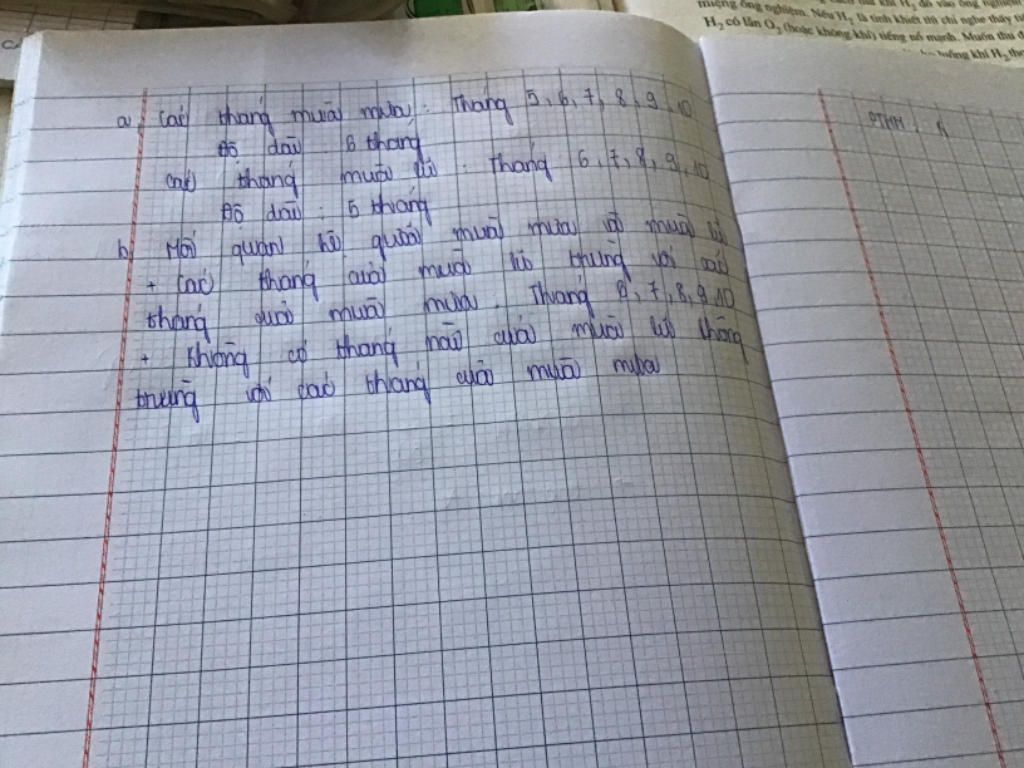 miệng ống nghiệm. Nếu H2 là tinh khiết thì chỉ nghe thấy
H2 có lẫn O2 (hoặc không khí) tiếng nổ mạnh. Muốn thu
luồng khí H2
a, Các tháng mùa mưa: Tháng 5, 6, 7, 8, 9, 10
Độ dài: 6 tháng
các tháng mùa lũ: Tháng 6, 7, 8, 9, 10
Độ dài: 5 tháng
b, Mối quan hệ giữa mùa mưa và mùa lũ
+ Các tháng của mùa lũ trùng với các
tháng của mùa mưa: Tháng 6, 7, 8, 9, 10
+ Không có tháng nào của mùa lũ không
trùng với các tháng của mùa mưa
PTHH: